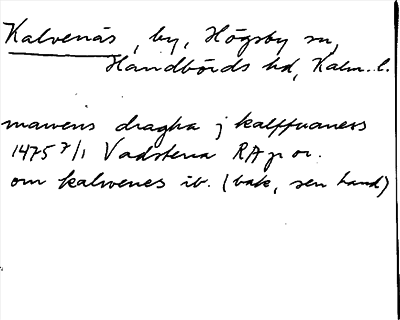 Kalvenäs, by, Högsby sn,
Handbörds hd, Kalm. l.
mawens dragha j kalffuanæss
1475 7/1 Vadstena RA p or.
om kalwenes ib. (bak, sen hand)